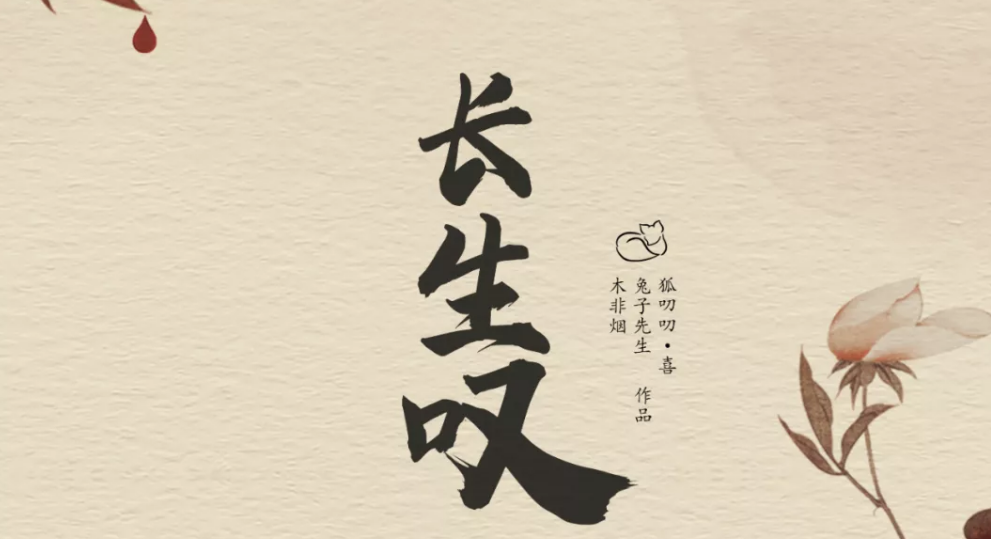 长生叹
狐叨叨·喜
兔子先生 作品
木非烟